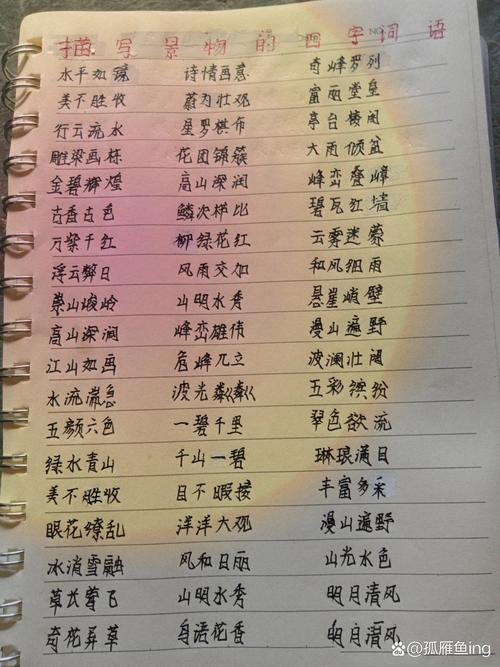 描写景物的四字词语
水平如镜 诗情画意 奇峰罗列
美不胜收 蔚为壮观 富丽堂皇
行云流水 星罗棋布 亭台楼阁
雕梁画栋 花团锦簇 大雨倾盆
金碧辉煌 高山深涧 峰峦叠嶂
古香古色 鳞次栉比 碧瓦红墙
万紫千红 柳绿花红 云雾迷蒙
浮云蔽日 风雨交加 和风细雨
崇山峻岭 山明水秀 悬崖峭壁
高山深涧 峰峦雄伟 漫山遍野
江山如画 危峰兀立 波澜壮阔
水流湍急 波光粼粼 五彩缤纷
五颜六色 一碧千里 翠色欲流
绿水青山 千山一碧 琳琅满目
美不胜收 目不暇接 丰富多采
眼花缭乱 洋洋大观 漫山遍野
冰消雪融 风和日丽 山光水色
草长莺飞 山明水秀 明月清风
奇花异草 鸟语花香 明月清风
@孤雁鱼ing